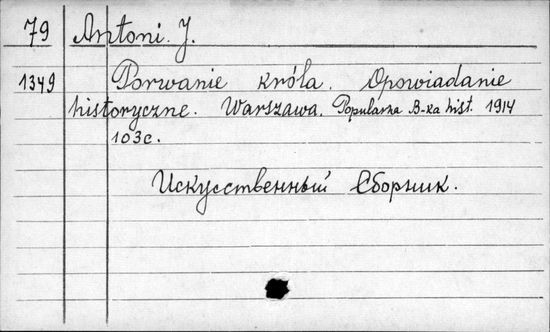 79 Antoni. J.
1349 Porwanie króla. Opowiadanie
historyczne. Warszawa. Popularna B-ka hist. 1914
103с.
Искусственный Сборник.